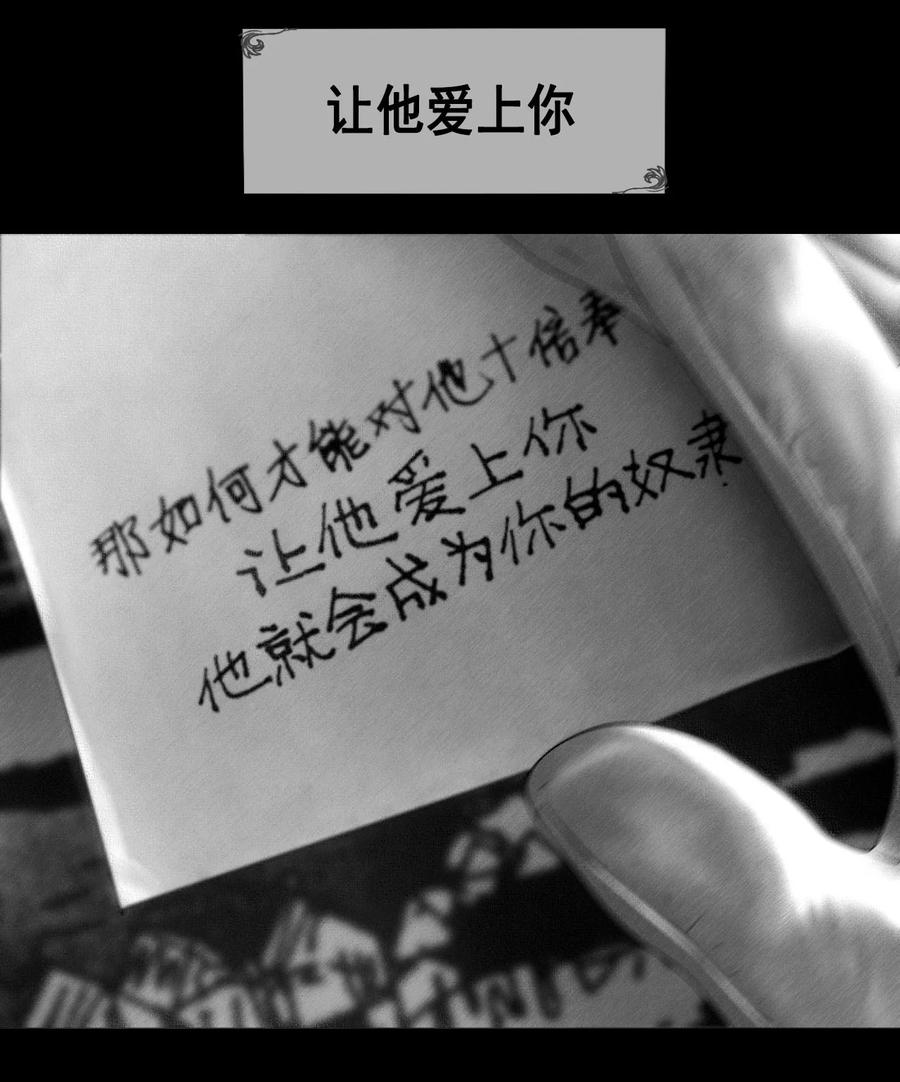 让他爱上你
那如何才能对他十倍奉
让他爱上你
他就会成为你的奴隶